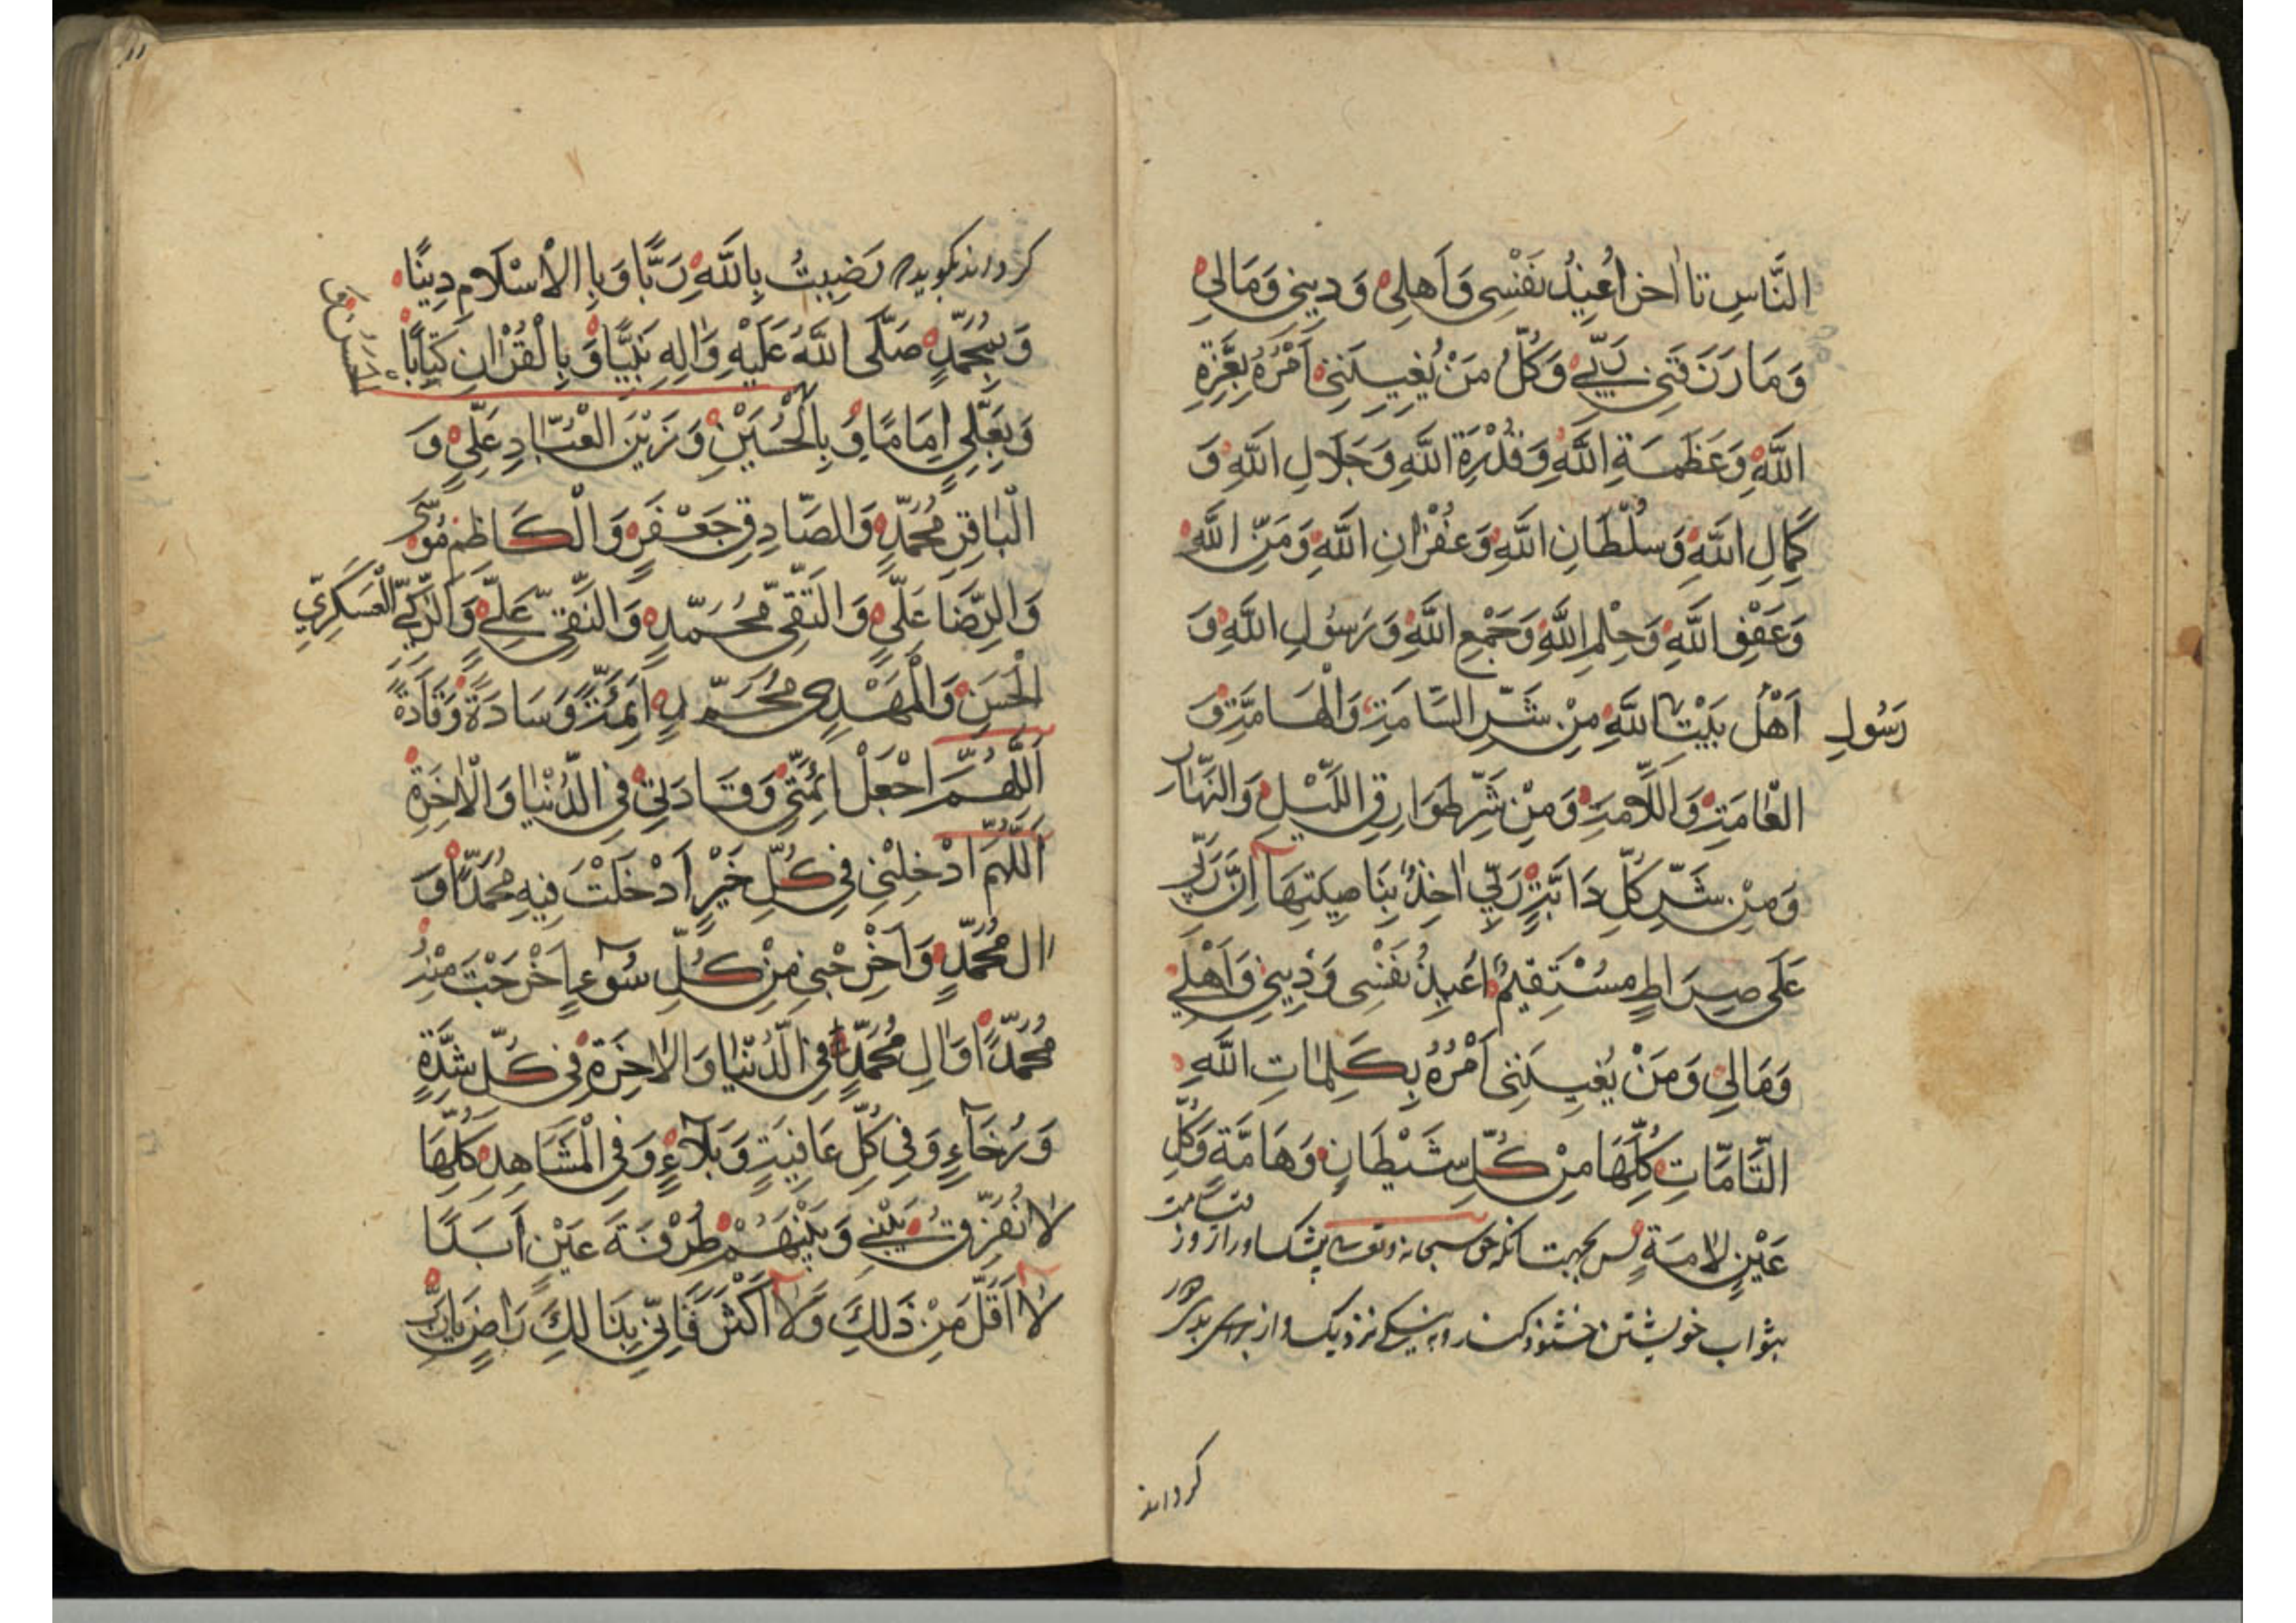 النَّاسِ تا اٰخر اُعِيذُ نَفْسِي وَاَهلِي وَدِينِي وَمَالِي
وَمَا رَزَقَنِي رَبِّي وَكُلُّ مَنْ يُعْنِيَنِي اَمْرُهُ بِعِزَّةِ
اللَّهِ وَعَظَمَةِ اللَّهِ وَقُدْرَةِ اللَّهِ وَجَلَالِ اللَّهِ وَ
كَمَالِ اللَّهِ وَسُلْطَانِ اللَّهِ وَغُفْرَانِ اللَّهِ وَمَنِّ اللَّهِ
وَعَفْوِ اللَّهِ وَحِلْمِ اللَّهِ وَجَمْعِ اللَّهِ وَرَسُولِ اللَّهِ وَ
اَهْلُ بَيْتِ اللَّهِ مِنْ شَرِّ السَّامَّةِ وَالْهَامَّةِ وَ
رَسُولِ
الْعَامَّةِ وَاللَّامَّةِ وَمِنْ شَرِّ طَوَارِقِ اللَّيْلِ وَالنَّهَارِ
وَمِنْ شَرِّ كُلِّ دَابَّةٍ رَبِّي اٰخِذٌ بِنَاصِيَتِهَا اِنَّ رَبِّي
عَلَى صِرَاطٍ مُسْتَقِيمٍ اُعِيذُ نَفْسِي وَدِينِي وَاَهْلِي
وَمَالِي وَمَنْ يُعْنِيَنِي اَمْرُهُ بِكَلِمَاتِ اللَّهِ
التَّامَّاتِ كُلِّهَا مِنْ كُلِّ شَيْطَانٍ وَهَامَّةٍ وَكُلِّ
عَيْنٍ لَامَّةٍ پس بجهت آنکه حق سبحانه وتعالی پیشکاور از روز قیامت
بثواب خویشتن خشنود کند و نزدیک و از برای
کرداند
کرداند بکوید رَضِيتُ بِاللَّهِ رَبًّا وَبِالْاِسْلَامِ دِينًا
وَبِمُحَمَّدٍ صَلَّى اللَّهُ عَلَيْهِ وَاٰلِهِ نَبِيًّا وَبِالْقُرْاٰنِ كِتَابًا
الحسن و
وَبِعَلِيٍّ اِمَامًا وَ بِالْحُسَيْنِ وَزَيْنِ الْعُبَّادِ عَلِيٍّ وَ
الْبَاقِرِ مُحَمَّدٍ وَالصَّادِقِ جَعْفَرٍ وَالْكَاظِمِ مُوسَى
وَالرِّضَا عَلِيٍّ وَالتَّقِيِّ مُحَمَّدٍ وَالنَّقِيِّ عَلِيٍّ وَالزَّكِيِّ الْعَسْكَرِيِّ
الْحَسَنِ وَالْمَهْدِي مُحَمَّدٍ اَئِمَّةً وَسَادَةً وَقَادَةً
اَللَّهُمَّ اجْعَلْ اَئِمَّتِي وَقَادَتِي فِي الدُّنْيَا وَالْاٰخِرَةِ
اَللَّهُمَّ اَدْخِلْنِي فِي كُلِّ خَيْرٍ اَدْخَلْتَ فِيهِ مُحَمَّدًا وَ
اٰلَ مُحَمَّدٍ وَاَخْرِجْنِي مِنْ كُلِّ سُوٓءٍ اَخْرَجْتَ مِنْهُ
مُحَمَّدًا وَاٰلِ مُحَمَّدٍ فِي الدُّنْيَا وَالْاٰخِرَةِ فِي كُلِّ شِدَّةٍ
وَرَخَآءٍ وَفِي كُلِّ عَافِيَةٍ وَبَلَآءٍ وَفِي الْمَشَاهِدِ كُلِّهَا
لَا تُفَرِّقْ بَيْنِي وَبَيْنَهُمْ طَرْفَةَ عَيْنٍ اَبَدًا
لَا اَقَلَّ مِنْ ذَلِكَ وَلَا اَكْثَرَ فَاِنِّي بِذَالِكَ رَاضٍ يَارَبِّ